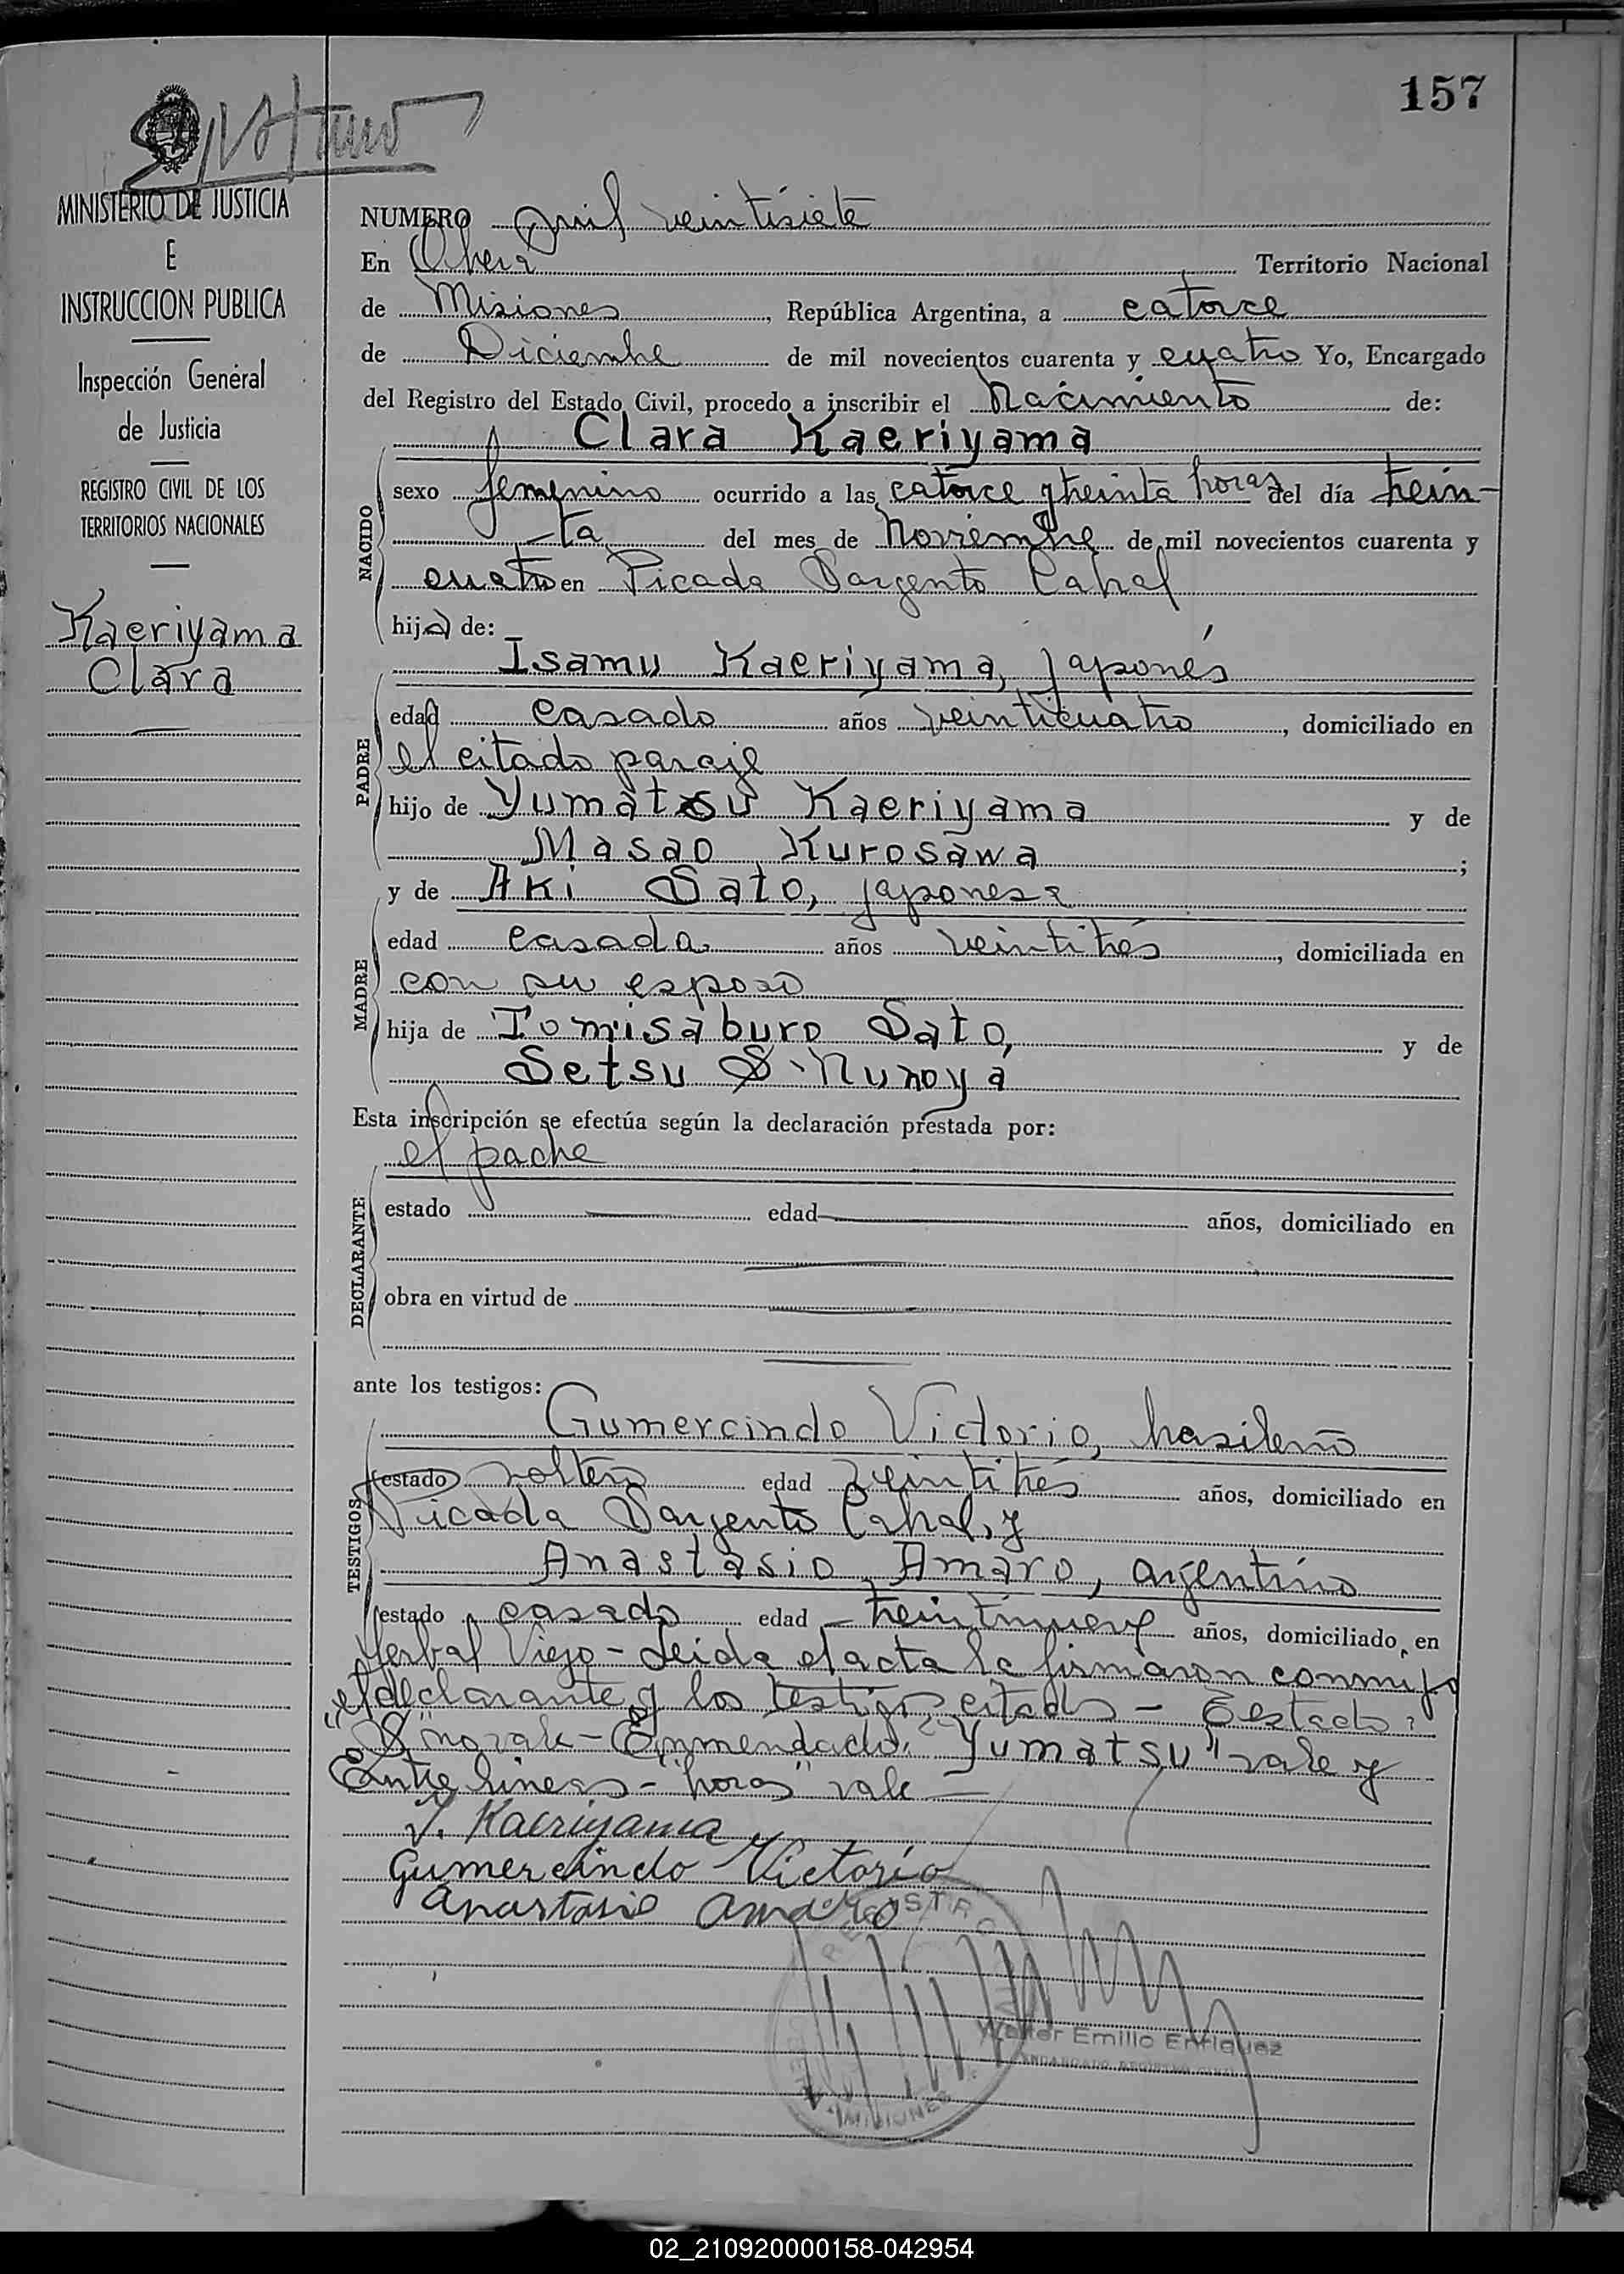 157
MINISTERIO DE JUSTICIA
E
INSTRUCCION PUBLICA
Inspección General
de Justicia
REGISTRO CIVIL DE LOS
TERRITORIOS NACIONALES
Kaeriyama
Clara
NUMERO mil veintisiete
En Oberá Territorio Nacional
de Misiones, República Argentina, a catorce
de Diciembre de mil novecientos cuarenta y cuatro Yo, Encargado
del Registro del Estado Civil, procedo a inscribir el Nacimiento de:
Clara Kaeriyama
NACIDO
sexo femenino ocurrido a las catorce y treinta horas del día trein-
ta del mes de Noviembre de mil novecientos cuarenta y
cuatro en Picada Sargento Cabral
hija de:
Isamu Kaeriyama, japonés
PADRE
edad casado años veinticuatro, domiciliado en
el citado paraje
hijo de Yumatsu Kaeriyama y de
Masao Kurosawa;
y de Aki Sato, japonesa
MADRE
edad casada años veintitrés, domiciliada en
con su esposo
hija de Tomisaburo Sato, y de
Setsu S Nunoya
Esta inscripción se efectúa según la declaración prestada por:
el padre
DECLARANTE
estado edad años, domiciliado en
obra en virtud de
ante los testigos:
Gumercindo Victorio, brasileño
TESTIGOS
estado soltero edad veintitrés años, domiciliado en
Picada Sargento Cabral, y
Anastasio Amaro, argentino
estado casado edad treintinueve años, domiciliado en
Yerbal Viejo - Leida el acta la firmaron conmigo
el declarante y los testigos citados - Testado:
"S" no vale - Enmendado: "Yumatsu" vale y
Entre lineas - "horas" vale -
I. Kaeriyama
Gumercindo Victorio
Anastasio Amaro
REGISTRO
MISIONES
Walter Emilio Enriquez
ENCARGADO REGISTRO CIVIL
02_210920000158-042954